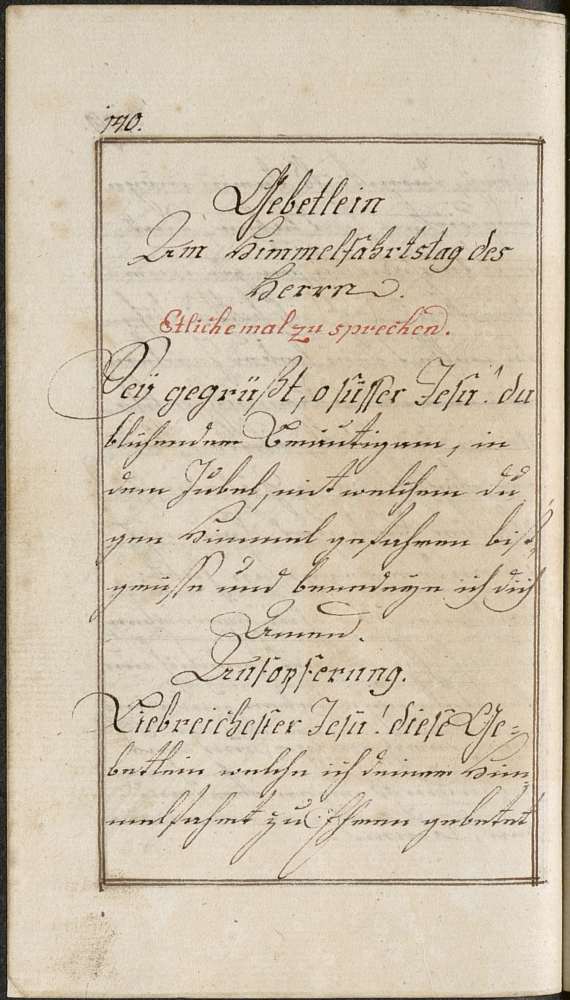 140.
Gebettlein
Am Himmelfahrtstag des
Herrn.
Etlichemal zu sprechen.
Seÿ gegrüßt, o süsser Jesu! du
blühender Bräutigam, in
dem Jubel, mit welchem du
gen Himmel gefahren bist,
grüsse und benedeye ich dich
Amen.
Aufopferung.
Liebreichester Jesu! diese Ge-
bettlein welche ich deiner Him
melfahrt zu Ehren gebetet